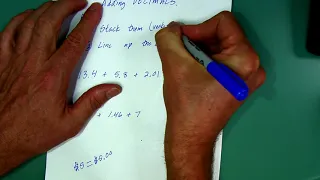 Adding DECIMALS.
Stack them (vert
Line up the
3.4 + 5.8 + 2.01
+ 1.46 + 7
$5 = $5.00